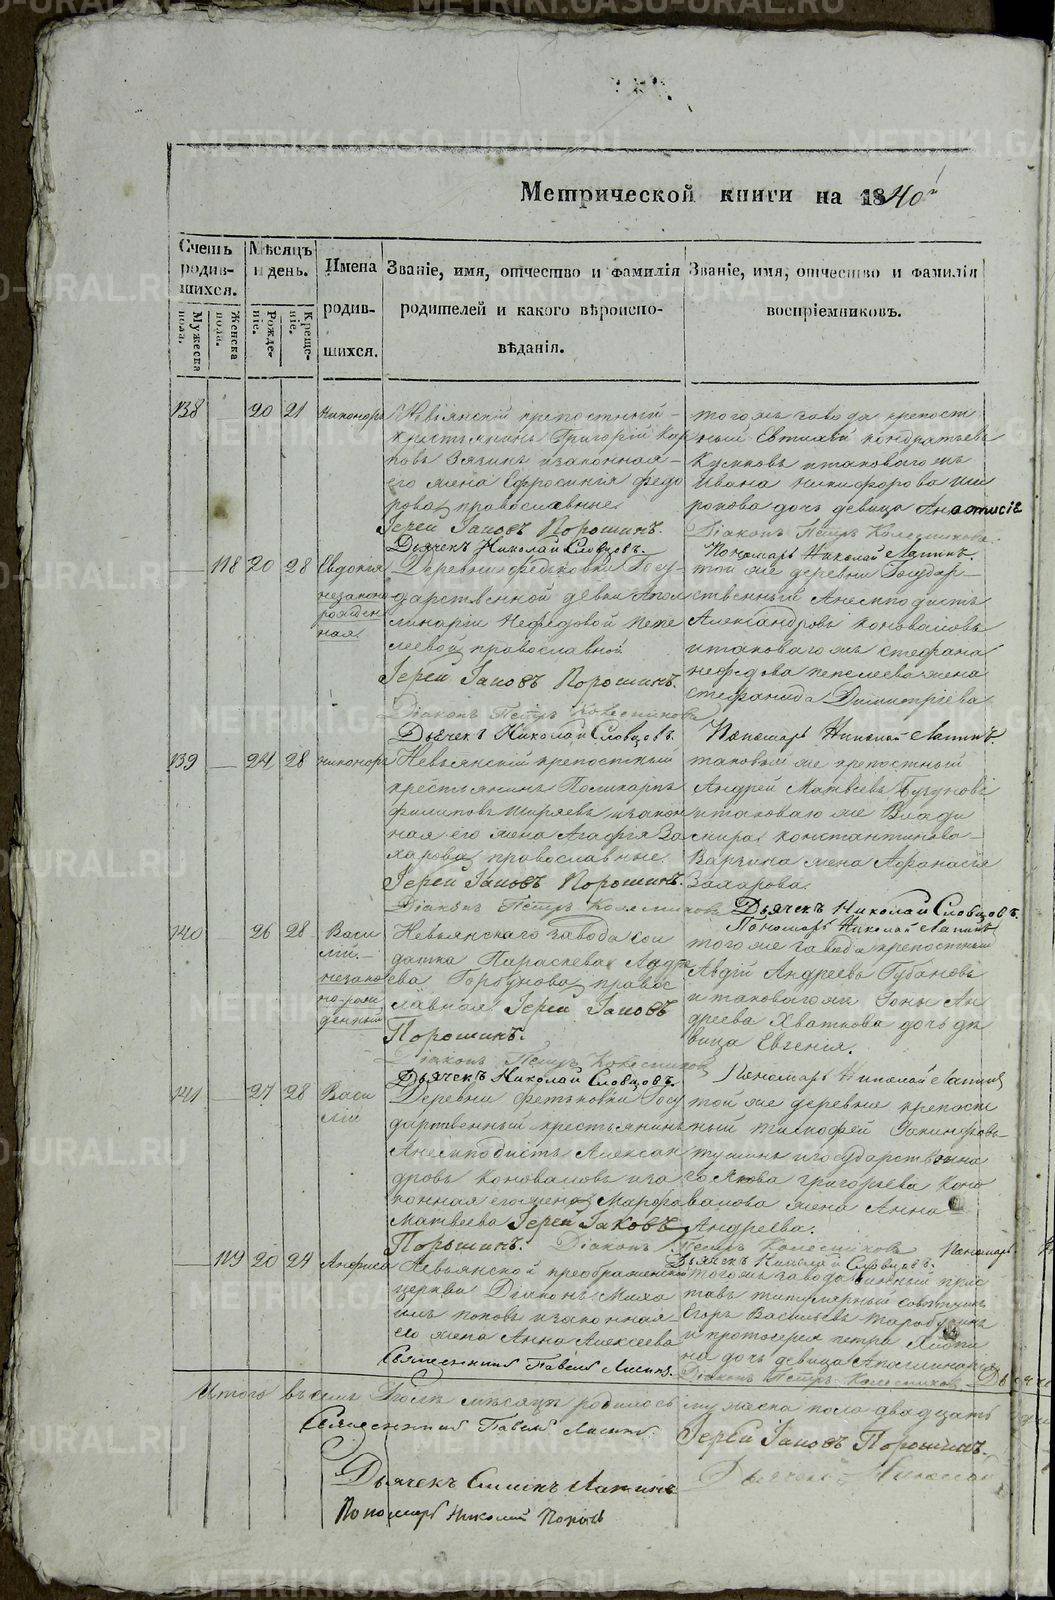 Метрической книги на 1840й
Счетъ родив-шихся.
Мужеска пола.
Женска пола.
Мѣсяцъ и день.
Рожде-ніе.
Креще-ніе.
Имена родив-шихся.
Званіе, имя, отчество и фамилія
родителей и какого вѣроиспо-
вѣданія.
Званіе, имя, отчество и фамилія
воспріемниковъ.
138 — 20 21 Никоноръ
Невьянскій крепостный
крестьянинъ Григорій Кар
повъ Зязинъ изаконная
его жена Ефросинія федо
рова, православные
Іерей Іаковъ Порошинъ.
Дьячекъ Николай Словцовъ.
тогожъ завода крепост
ный Евтихій кондратьевъ
итаковагожъ
Ивана никифорова
дочь девица Анастасіе
Діаконъ Петръ Колесниковъ
Пономарь Николай Лапинъ.
— 118 20 28 Евдокія
незаконо
рожден
ная
Деревни федьковки Госу-
дарственной девки Апол
линаріи Нефедовой пепе
леевой православной
Іерей Іаковъ Порошинъ.
Діаконъ Петръ Колесниковъ
Дьячекъ Николай Словцовъ.
той же деревни Государ-
ственный Анемподистъ
Александровъ Коноваловъ
итаковагожъ стефана
нефедова пепелеева жена
стефанида Димитріева
Пономарь Николай Лапинъ.
139 — 24 28 никоноръ
Невьянскій крепостный
крестьянинъ Поликарпъ
филиповъ ширяевъ изакон
ная его жена Агафія За
харова, православные
Іерей Іаковъ Порошинъ.
Діаконъ Петръ Колесниковъ
таковый же крепостный
Андрей Матвѣевъ
итаковаго же Влади
мира константинова
жена Афанасія
Захарова.
Дьячекъ Николай Словцовъ.
Пономарь Николай Лапинъ
140 — 26 28 Васи
лій.
незако
но-рож
денный
Невьянскаго завода сол
датка Параскева Андре
ева Горбунова, правос
лавная Іерей Іаковъ
Порошинъ.
Діаконъ Петръ Колесниковъ
Дьячекъ Николай Словцовъ.
того же завода крепостный
Авдій Андреевъ Губановъ
и таковагожъ Іоны Ан
дреева Хваткова дочь дѣ
вица Евгенія.
Пономарь Николай Лапинъ
141 — 27 28 Васи
лій
Деревни федьковки Госу
дарственный крестьянинъ
Анемподистъ Алексан
дровъ Коноваловъ иза
конная его жена Марфа
Матвеева Іерей Іаковъ
Порошинъ. Діаконъ Петръ Колесниковъ
той же деревни крепост
ный тимофей
игосударственна
го Якова григорьева Коно
валова жена Анна
Андреева.
Пономарь
Дьячекъ Николай Словцовъ.
— 119 20 24 Анфиса
Невьянской преображенской
церкви Діаконъ Миха
илъ поповъ изаконная
его жена Анна Алексеева
Священникъ Павелъ Лисинъ.
тогожъ завода
титулярный советникъ
Егоръ Васильевъ
и протоіерея петра
на дочь девица Аполлинарія
Діаконъ Петръ Колесниковъ
Итого въ семъ Іюлѣ мѣсяцѣ родилось мужеска пола двадцать
Священникъ Павелъ Лисинъ.
Іерей Іаковъ Порошинъ.
Дьячекъ Николай
Дьячекъ Симіонъ Лапинъ
Пономарь Николай Поповъ